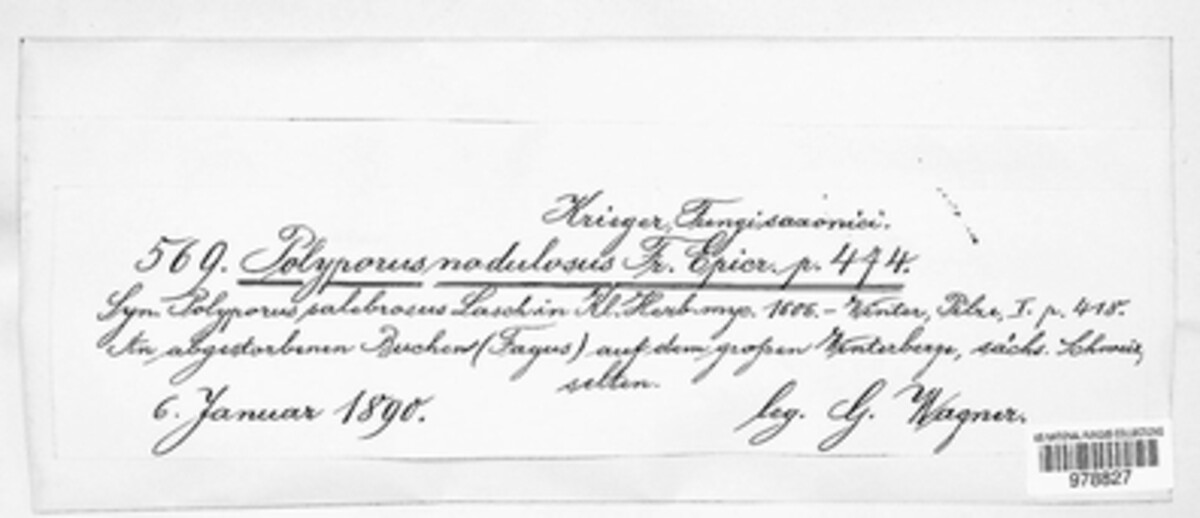 Krieger, Fungi saxonici.
569. Polyporus nodulosus Fr. Epicr. p. 474.
Syn. Polyporus salebrosus Lasch in Kl. Herb. myc. 1606. – Winter, Pilze, I. p. 418.
An abgestorbenen Buchen (Fagus) auf dem großen Winterberge, sächs. Schweiz,
selten.
6. Januar 1890. leg. G. Wagner.
US NATIONAL FUNGUS COLLECTIONS
978827